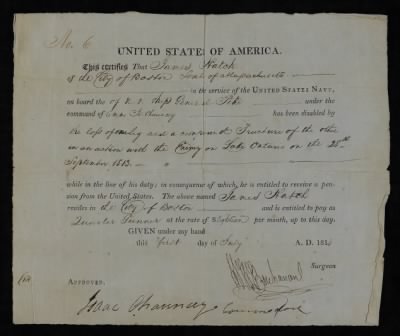 No. 6
UNITED STATES OF AMERICA.
This certifies That James Hatch
of the City of Boston State of Massachusetts
in the service of the UNITED STATES NAVY,
on board the of U S Ship General Pike under the
command of Isaac Chauncey has been disabled by
the loss of and a of the other
in an action with the Enemy on Lake Ontario on the 28th
September 1813.
while in the line of his duty; in consequence of which, he is entitled to receive a pen-
sion from the United States. The above named James Hatch
resides in the City of Boston and is entitled to pay as
Quarter Gunner at the rate of Eighteen per month, up to this day.
GIVEN under my hand
this first day of July A. D. 181
Buchanan Surgeon
APPROVED.
Isaac Chauncey Commodore